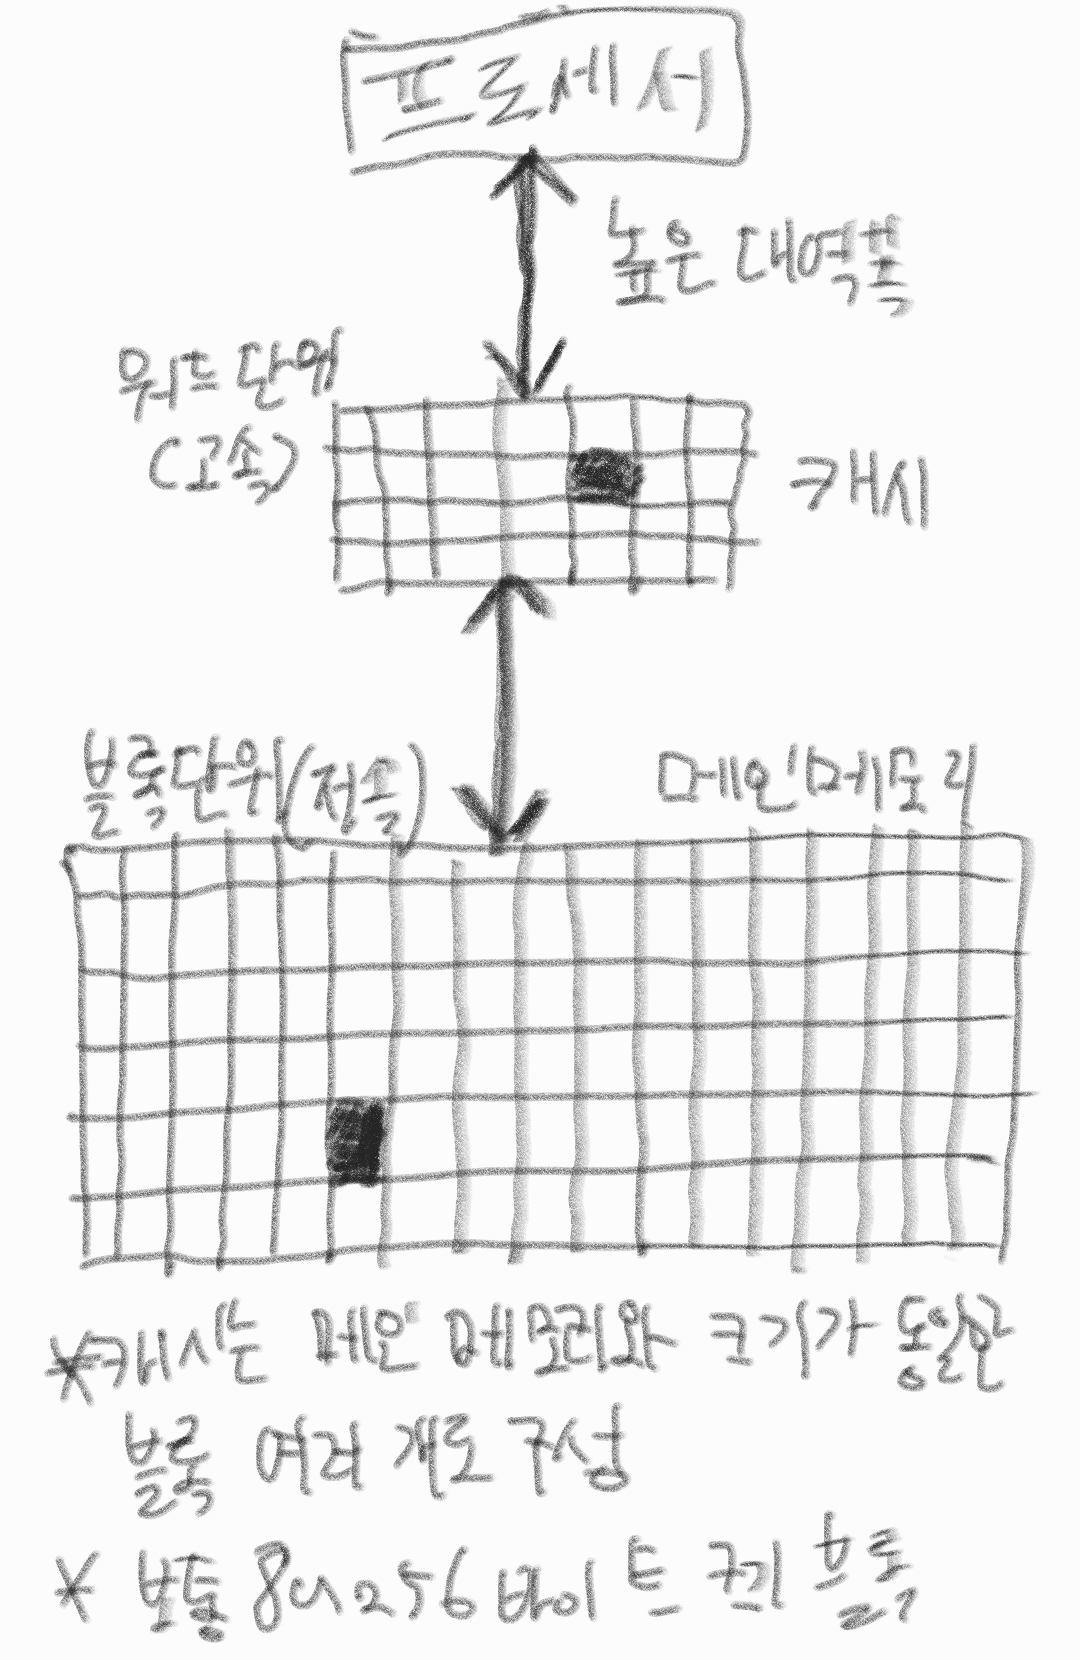 프로세서
높은 대역폭
워드 단위
(고속)
캐시
블록단위(저속)
메인메모리
*캐시는 메인 메모리와 크기가 동일한
블록 여러 개로 구성
* 보통 8~256 바이트 크기 블록